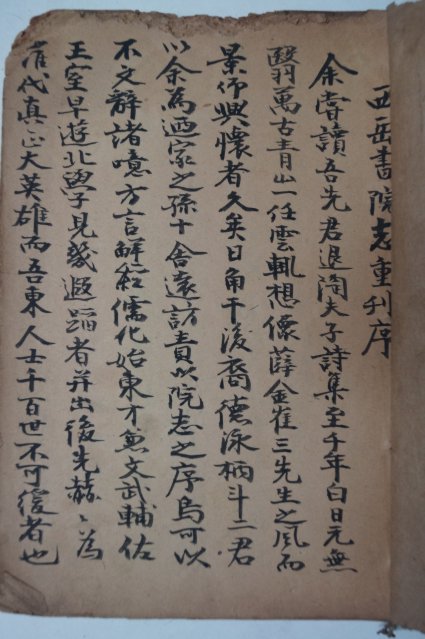 西岳書院志重刊序
余嘗讀吾先君退陶夫子詩集至千年白日元無
翳萬古青山一任雲輒想像薛金崔三先生之風而
景仰興懷者久矣日角干後裔德泳柄斗二君
以余爲迺家之孫十舍遠訪責以院志之序烏可以
不文辭諸噫方言解經儒化始東才兼文武輔佐
王室早遊北學見幾遐蹈者并出後先赫〻爲
羅代真正大英雄而吾東人士千百世不可復者也